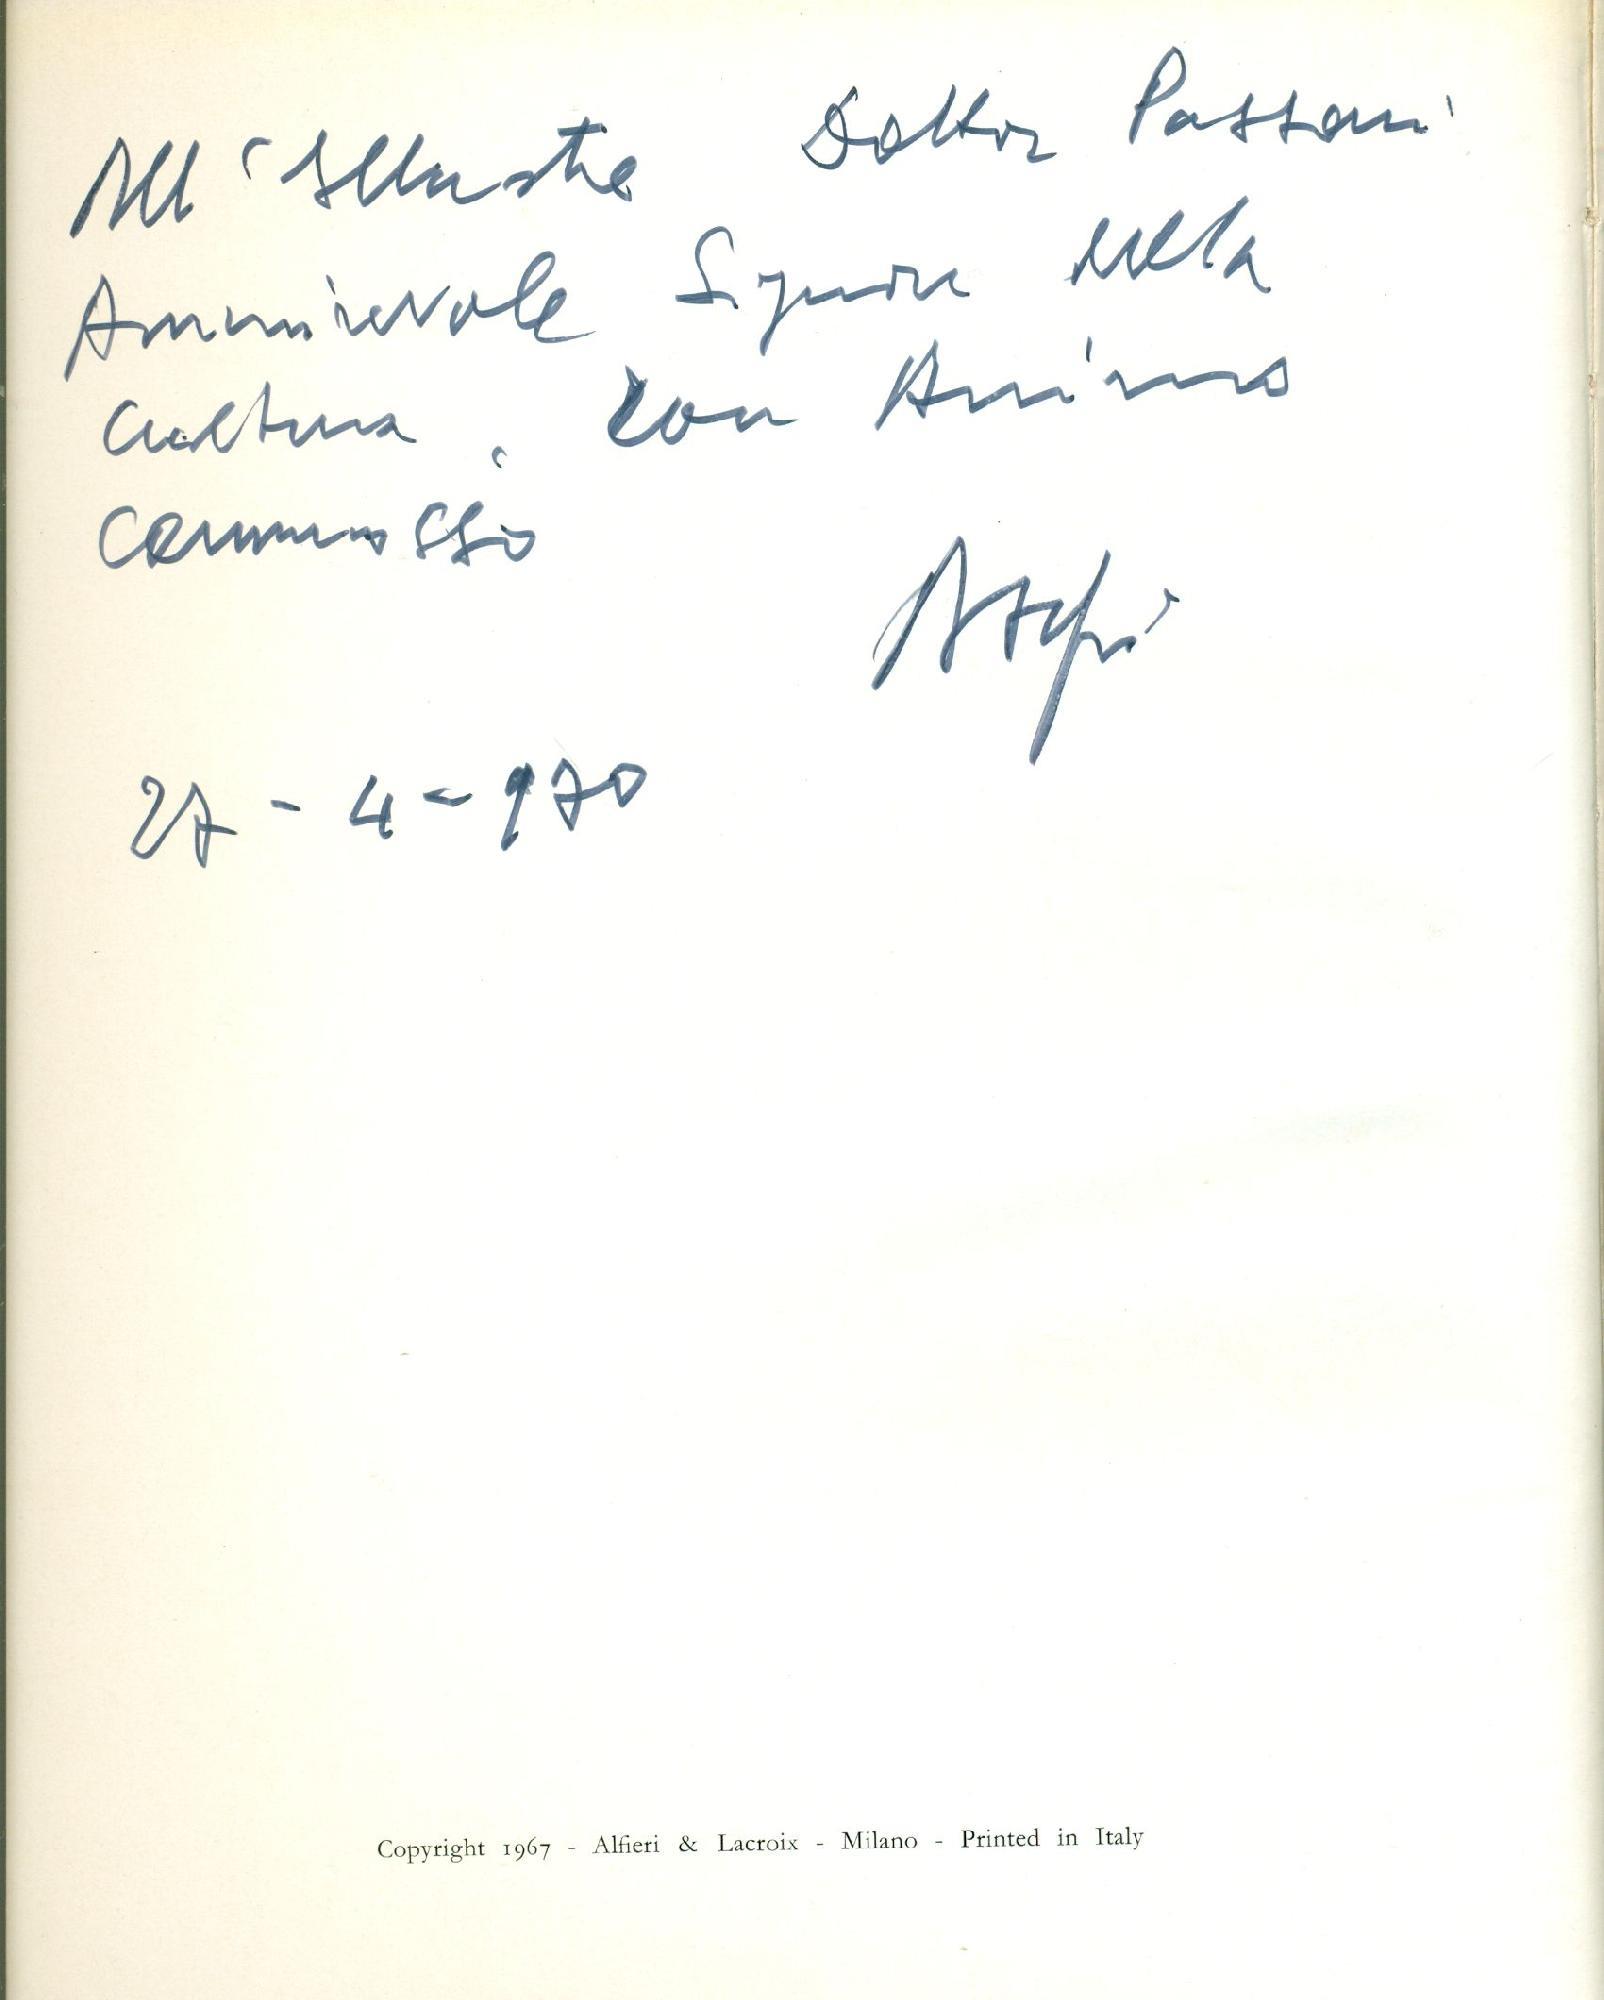 All'Illustre Dottor Passoni
Ammirevole Signore della
Cultura, con Animo
Commosso
27-4-970
Copyright 1967 - Alfieri & Lacroix - Milano - Printed in Italy